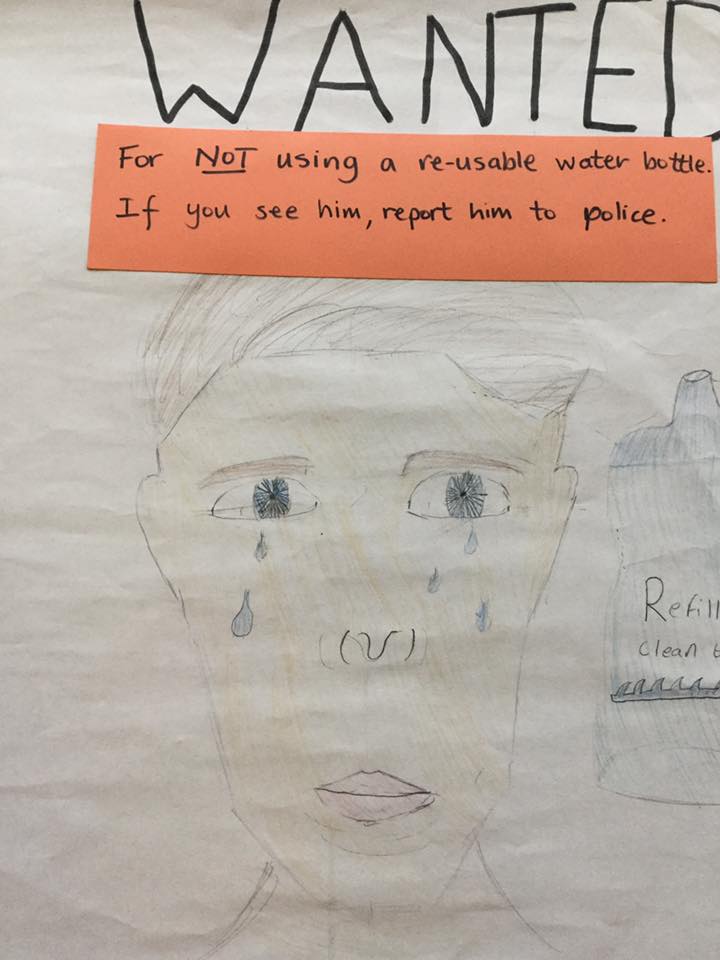 WANTED
For NOT using a re-usable water bottle.
If you see him, report him to police.
Refill
clean